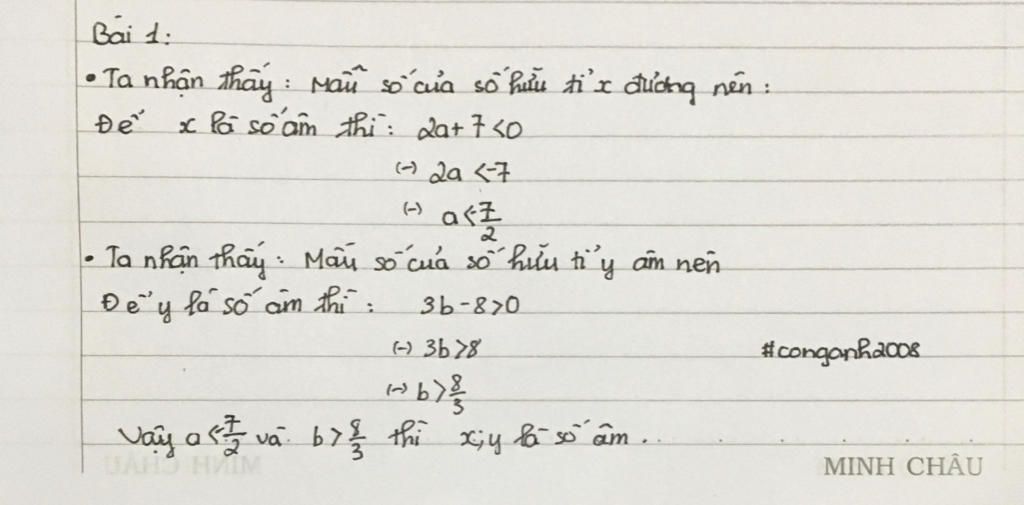 Bài 1:
• Ta nhận thấy: Mẫu số của số hữu tỉ x dương nên:
Để x là số âm thì: 2a+7<0
(-) 2a <-7
(-) a<-7/2
• Ta nhận thấy: Mẫu số của số hữu tỉ y âm nên
Để y là số âm thì: 3b-8>0
(-) 3b>8
#conganh2008
(-) b>8/3
Vậy a<-7/2 và b>8/3 thì x;y là số âm.
MINH CHÂU